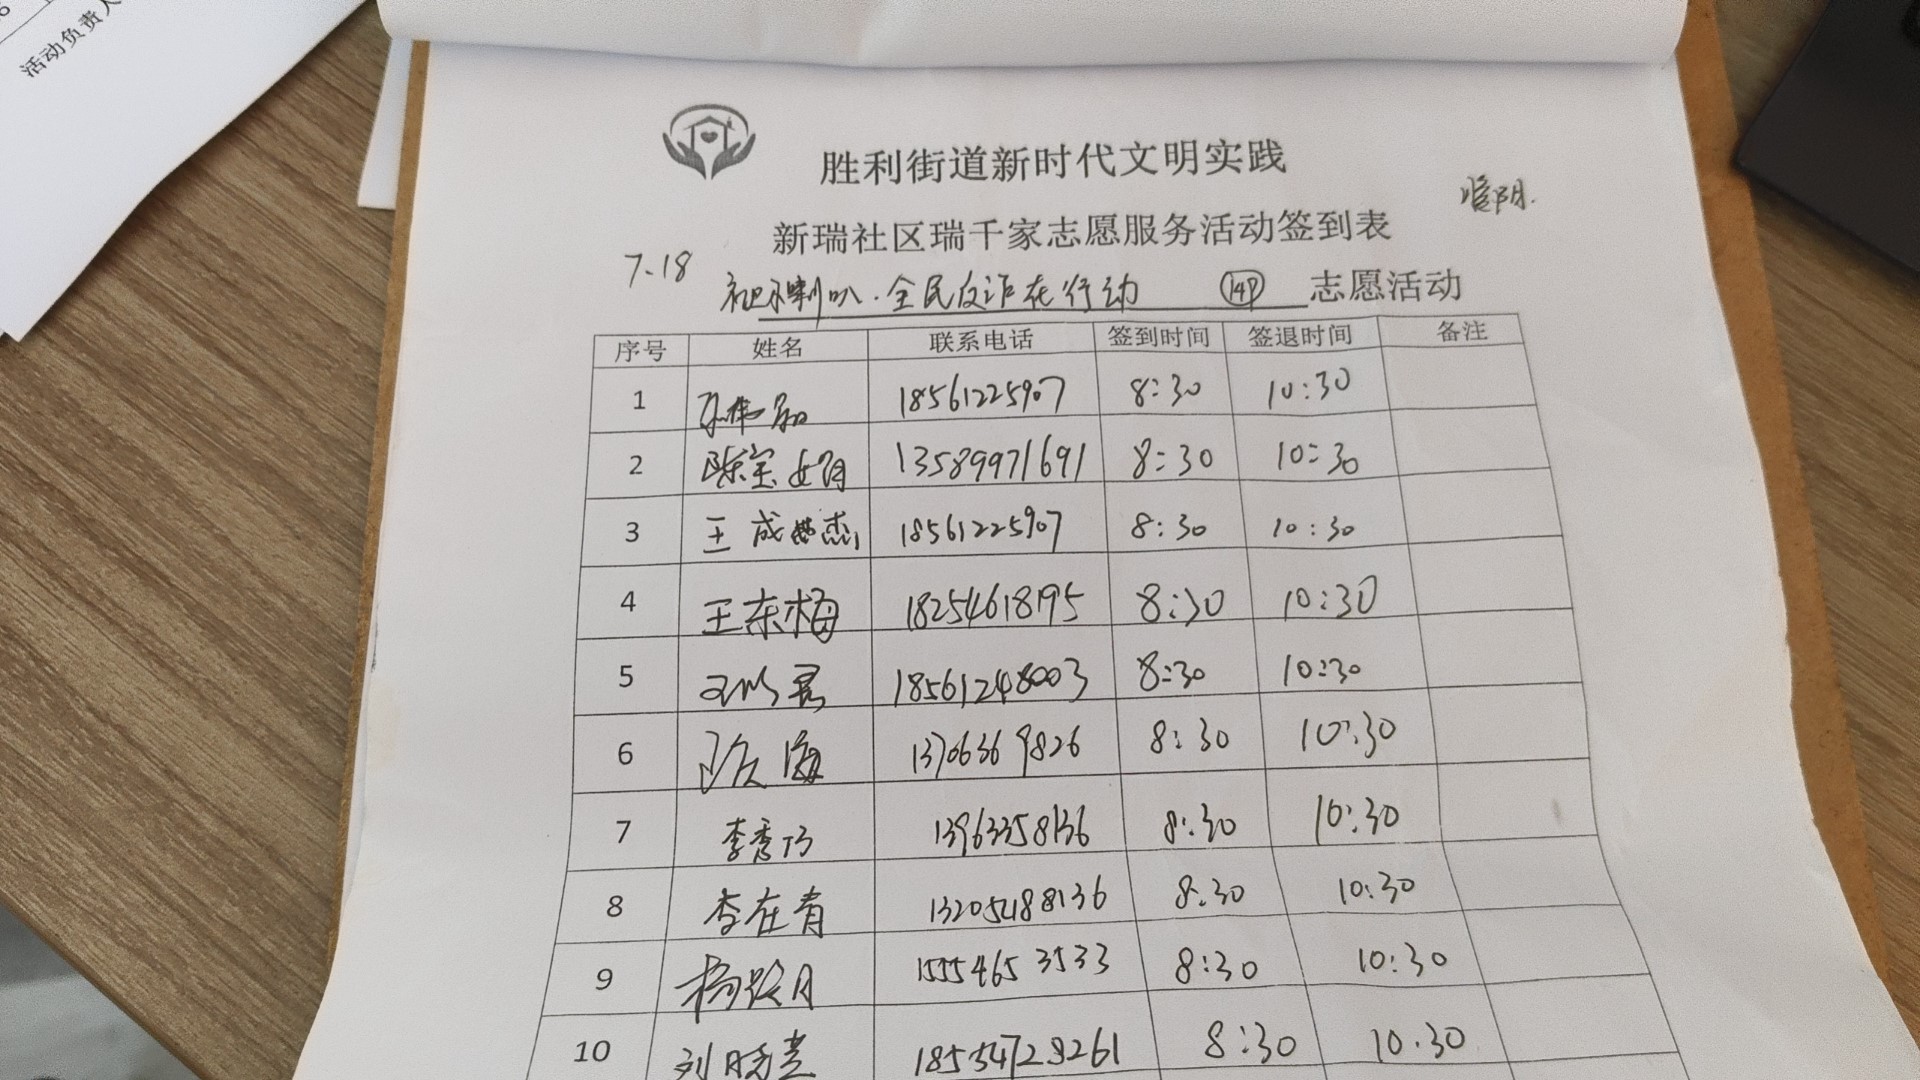 活动负责人
胜利街道新时代文明实践
新瑞社区瑞千家志愿服务活动签到表
7-18
喇叭.全民反诈在行动 14P 志愿活动
序号 姓名 联系电话 签到时间 签退时间 备注
1 18561225907 8:30 10:30
2 陈宝娟 13589971691 8:30 10:30
3 王成杰 18561225907 8:30 10:30
4 王东梅 18254618195 8:30 10:30
5 18561248003 8:30 10:30
6 13706369826 8:30 10:30
7 李秀巧 13963358136 8:30 10:30
8 李在青 13205488136 8:30 10:30
9 15554653533 8:30 10:30
10 18554729261 8:30 10.30